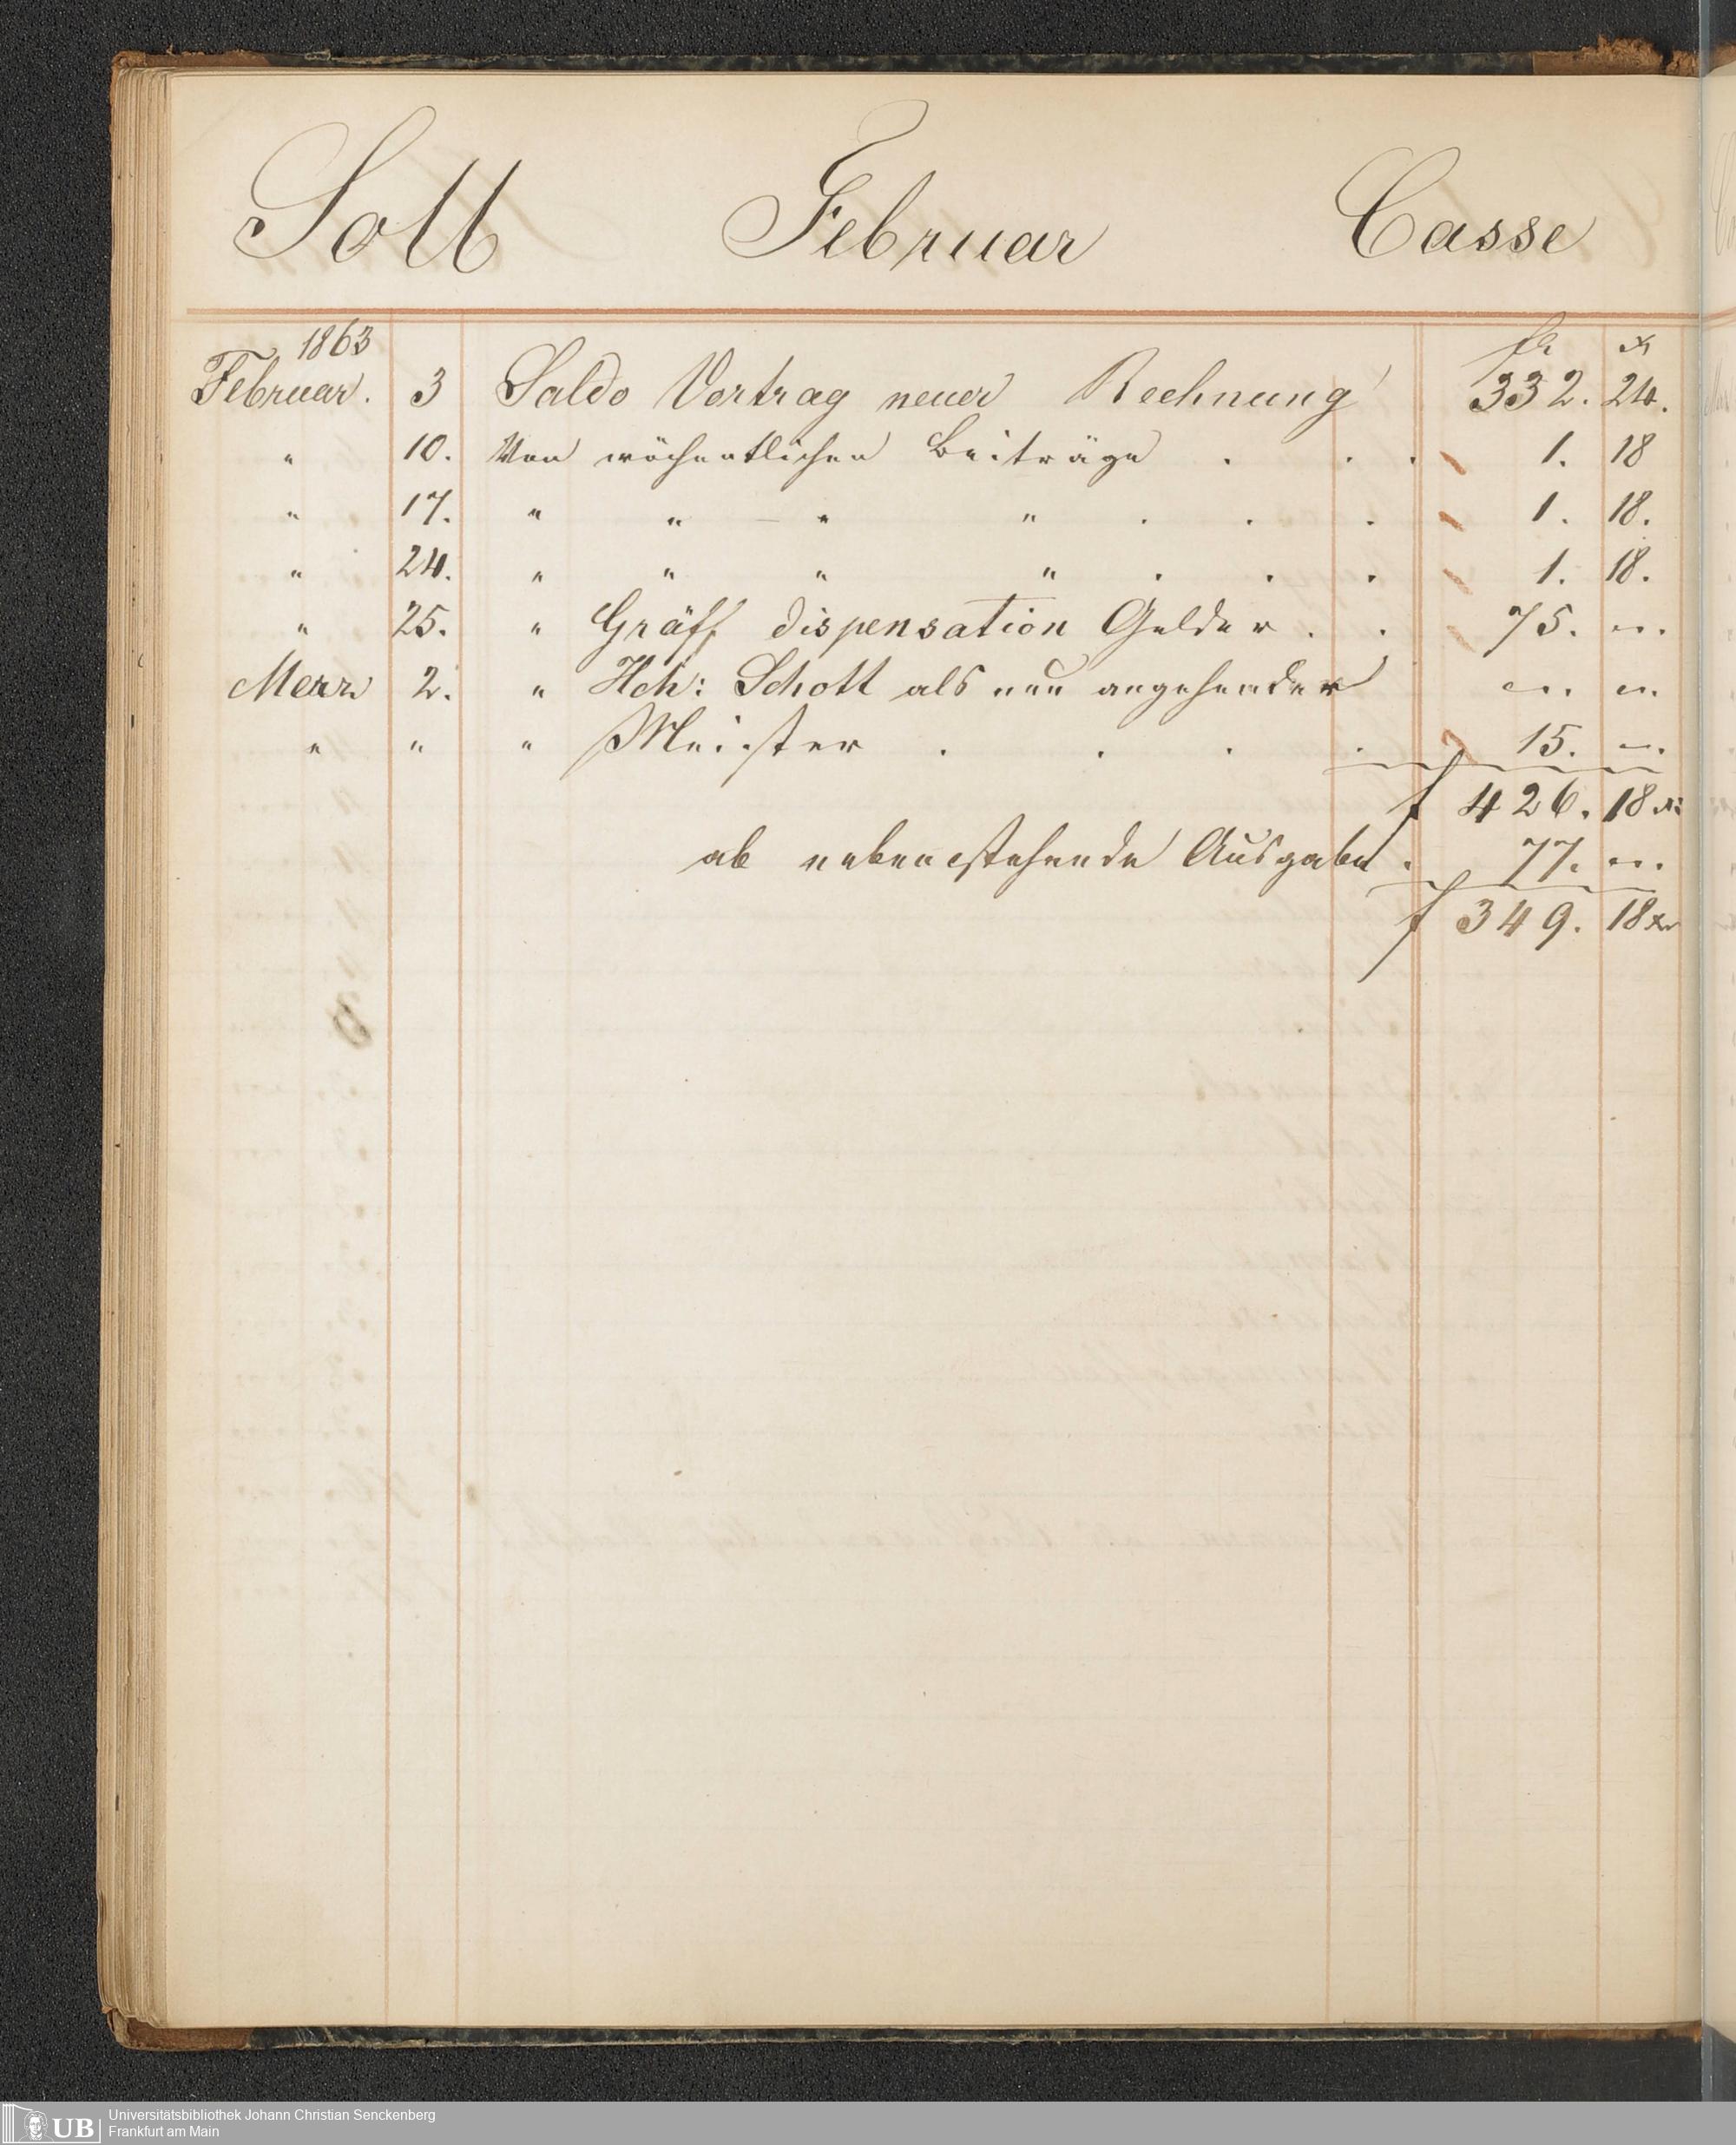 Soll Februar Casse
1863 fl xr
Februar. 3 Saldo Vortrag neuer Rechnung 332. 24.
" 10. Von wöchentlichen Beiträge . . . 1. 18
" 17. " " — " " . . . 1. 18.
" 24. " " " " . . . 1. 18.
" 25. " Gräff dispensation Gelder . . 75. ".
Merz 2. " Hch: Schott als neu angehender ". ".
" " " Meister . . . . 15. ".
f 426. 18 xr
ab nebenstehende Ausgabe . 77. ".
f 349. 18 xr
UB
Universitätsbibliothek Johann Christian Senckenberg
Frankfurt am Main